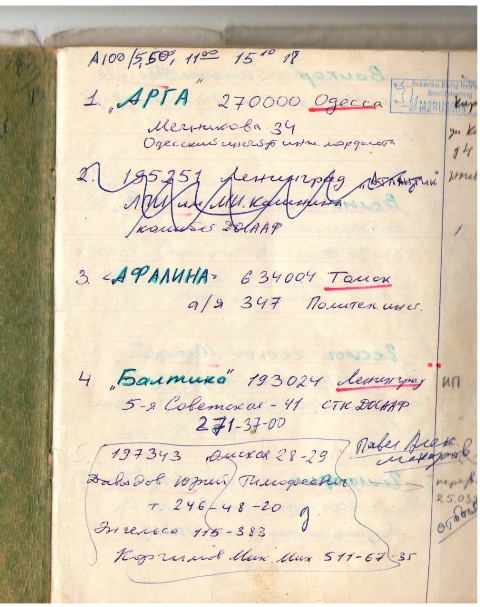 А100/5,50, 11⁰⁰ 15¹⁰ 18
1. "АРГА" 270000 Одесса
Мечникова 34
Одесский инж.
2. 195251 Ленинград "Атлантий"
ЛПИ им. М.И. Калинина
комитет ДОСААФ
3. "АФАЛИНА" 634004 Томск
а/я 347 Политехинст.
4. "Балтика" 193024 Ленинград
5-я Советская - 41 СТК ДОСААФ
271-37-00
197343 Омская 28-29
Давыдов Юрий Тимофеевич
т. 246-48-20
Энгельса 115-383
Мих. Мих 511-67-35
Павел Алек.
Макаров
ИП
25.03